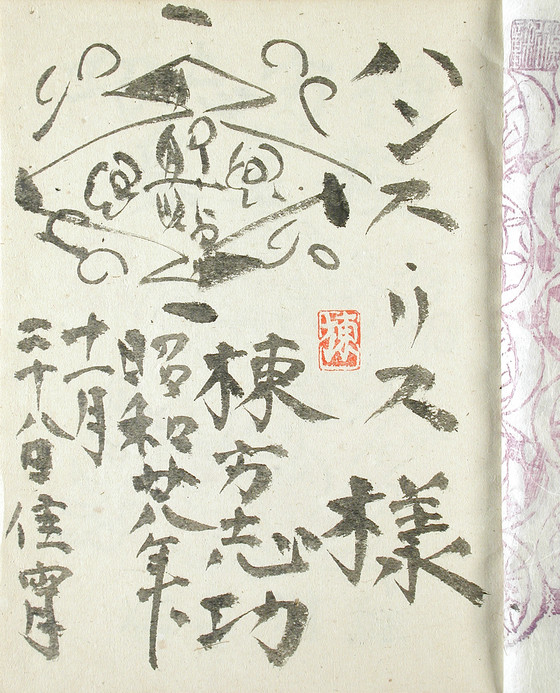 ハンス・リス様
棟方志功
昭和廿八年、
十一月
二十八日佳宵
棟